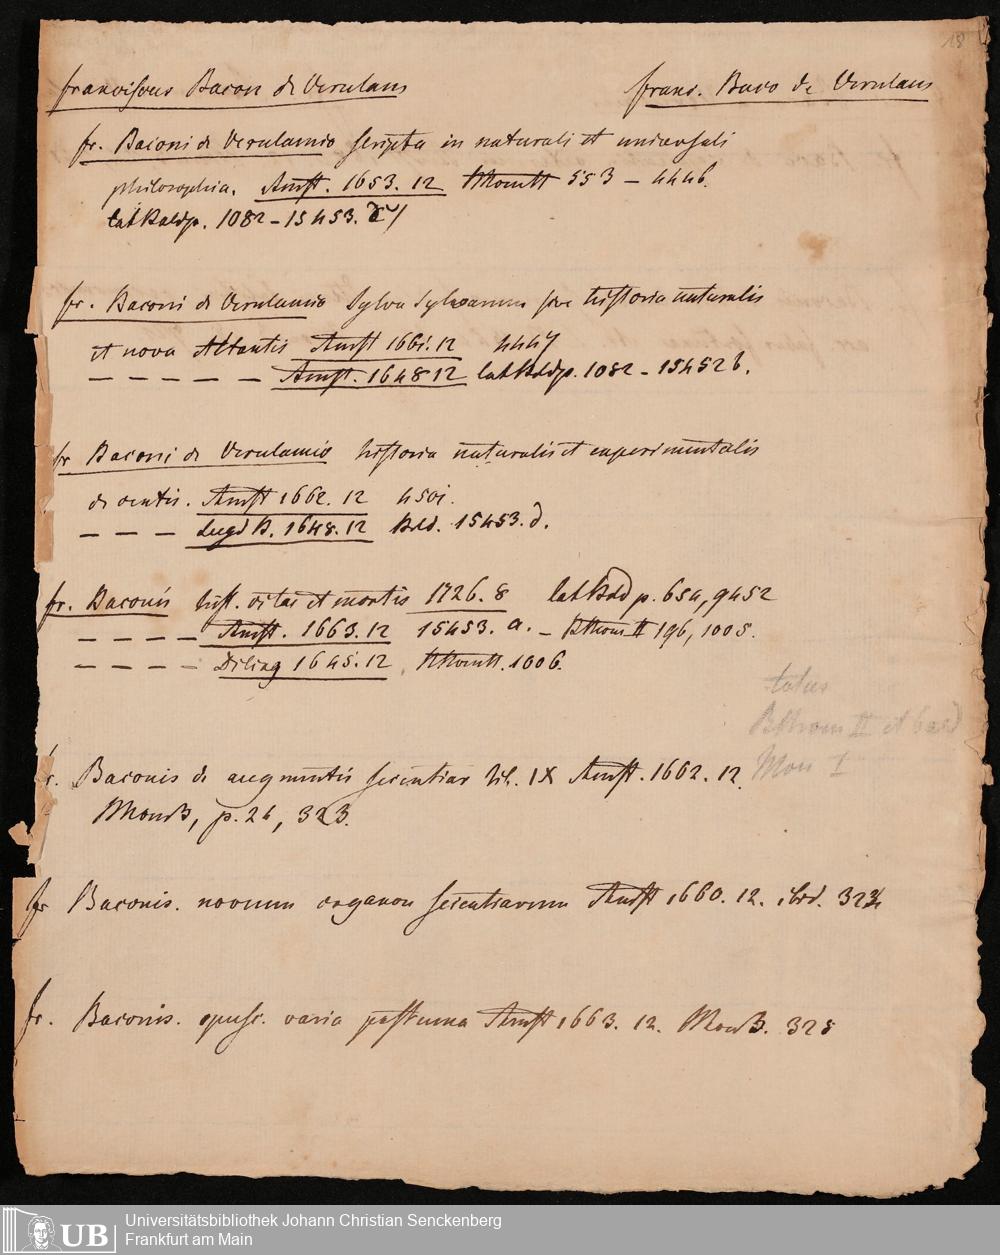 18
franciscus Bacon de Verulam franc. Baco de Verulam
fr. Baconi de Verulamio scripta in naturali et universali
philosophia. Amst. 1653. 12 553 – 4446.
1082 – 15453. c/
fr. Baconi de Verulamio Sylva Sylvarum sive historia naturalis
et nova Atlantis Amst 1661. 12 4447
– – – – – – Amst. 1648 12 1082 – 15452 b.
fr Baconi de Verulamio historia naturalis et experimentalis
de ventis. Amst 1662. 12 4501.
– – – Lugd B. 1648. 12 15453. d.
fr. Baconis hist. vitae et mortis 1726. 8 p. 654, 9452
– – – – Amst. 1663. 12 15453. a. – II 196, 1005.
– – – – Diling 1645. 12 1006.
totus
II et
Mon I
fr. Baconis de augmentis scientiar lib. IX Amst. 1662. 12
p. 26, 323.
fr Baconis. novum organon scientiarum Amst 1660. 12. ibid. 324
fr. Baconis. opusc. varia postuma Amst 1663. 12. 325
UB
Universitätsbibliothek Johann Christian Senckenberg
Frankfurt am Main